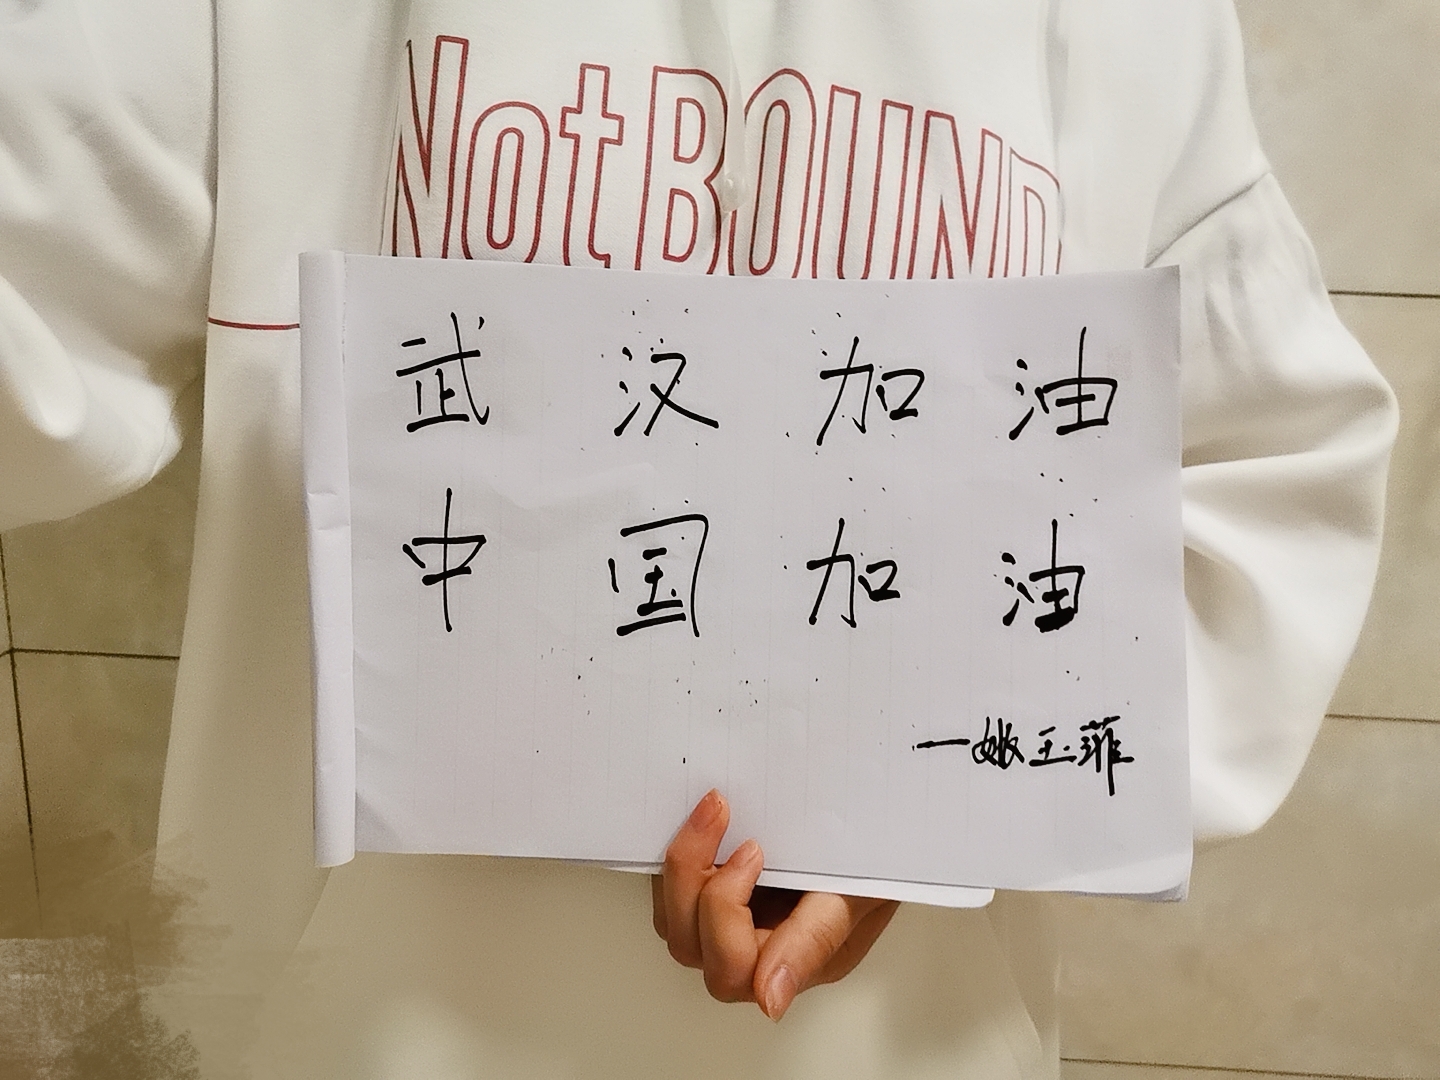 Not BOUND
武汉加油
中国加油
一姚玉菲